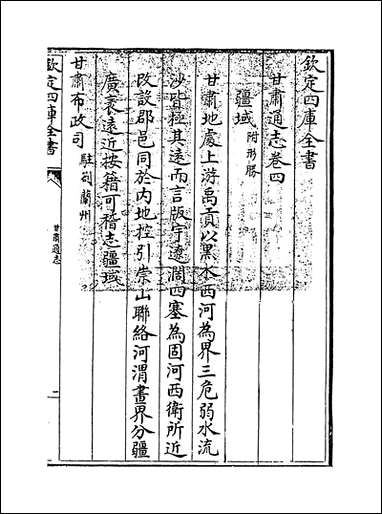 欽定四庫全書
甘肅通志卷四
疆域 附形勝
甘肅地處上游禹貢以黑水西河為界三危弱水流
沙皆極其遠而言版宇遼濶四塞為固河西衛所近
改設郡邑同於内地控引崇山聯絡河渭畫界分疆
廣袤遠近按籍可稽志疆域
甘肅布政司 駐劄蘭州
欽定四庫全書
甘肅通志